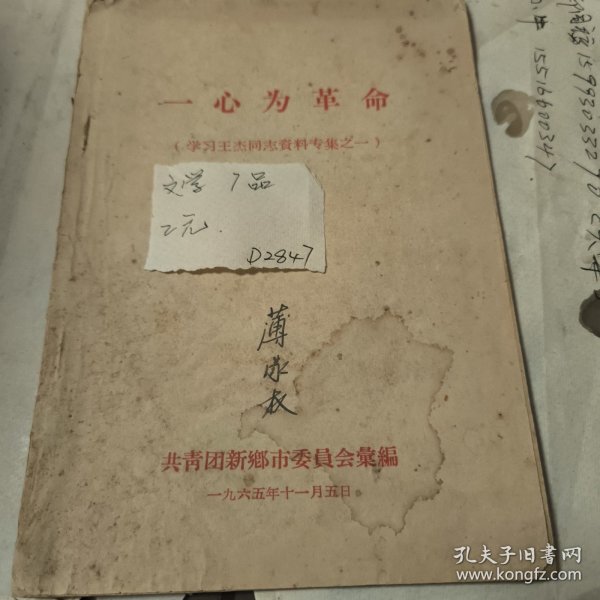 一心为革命
（学习王杰同志資料专集之一）
文学 7品
2元.
D2847
薄
共青团新鄉市委員会彙編
一九六五年十一月五日
中 15516600347
孔夫子旧书网
www.kongfz.com